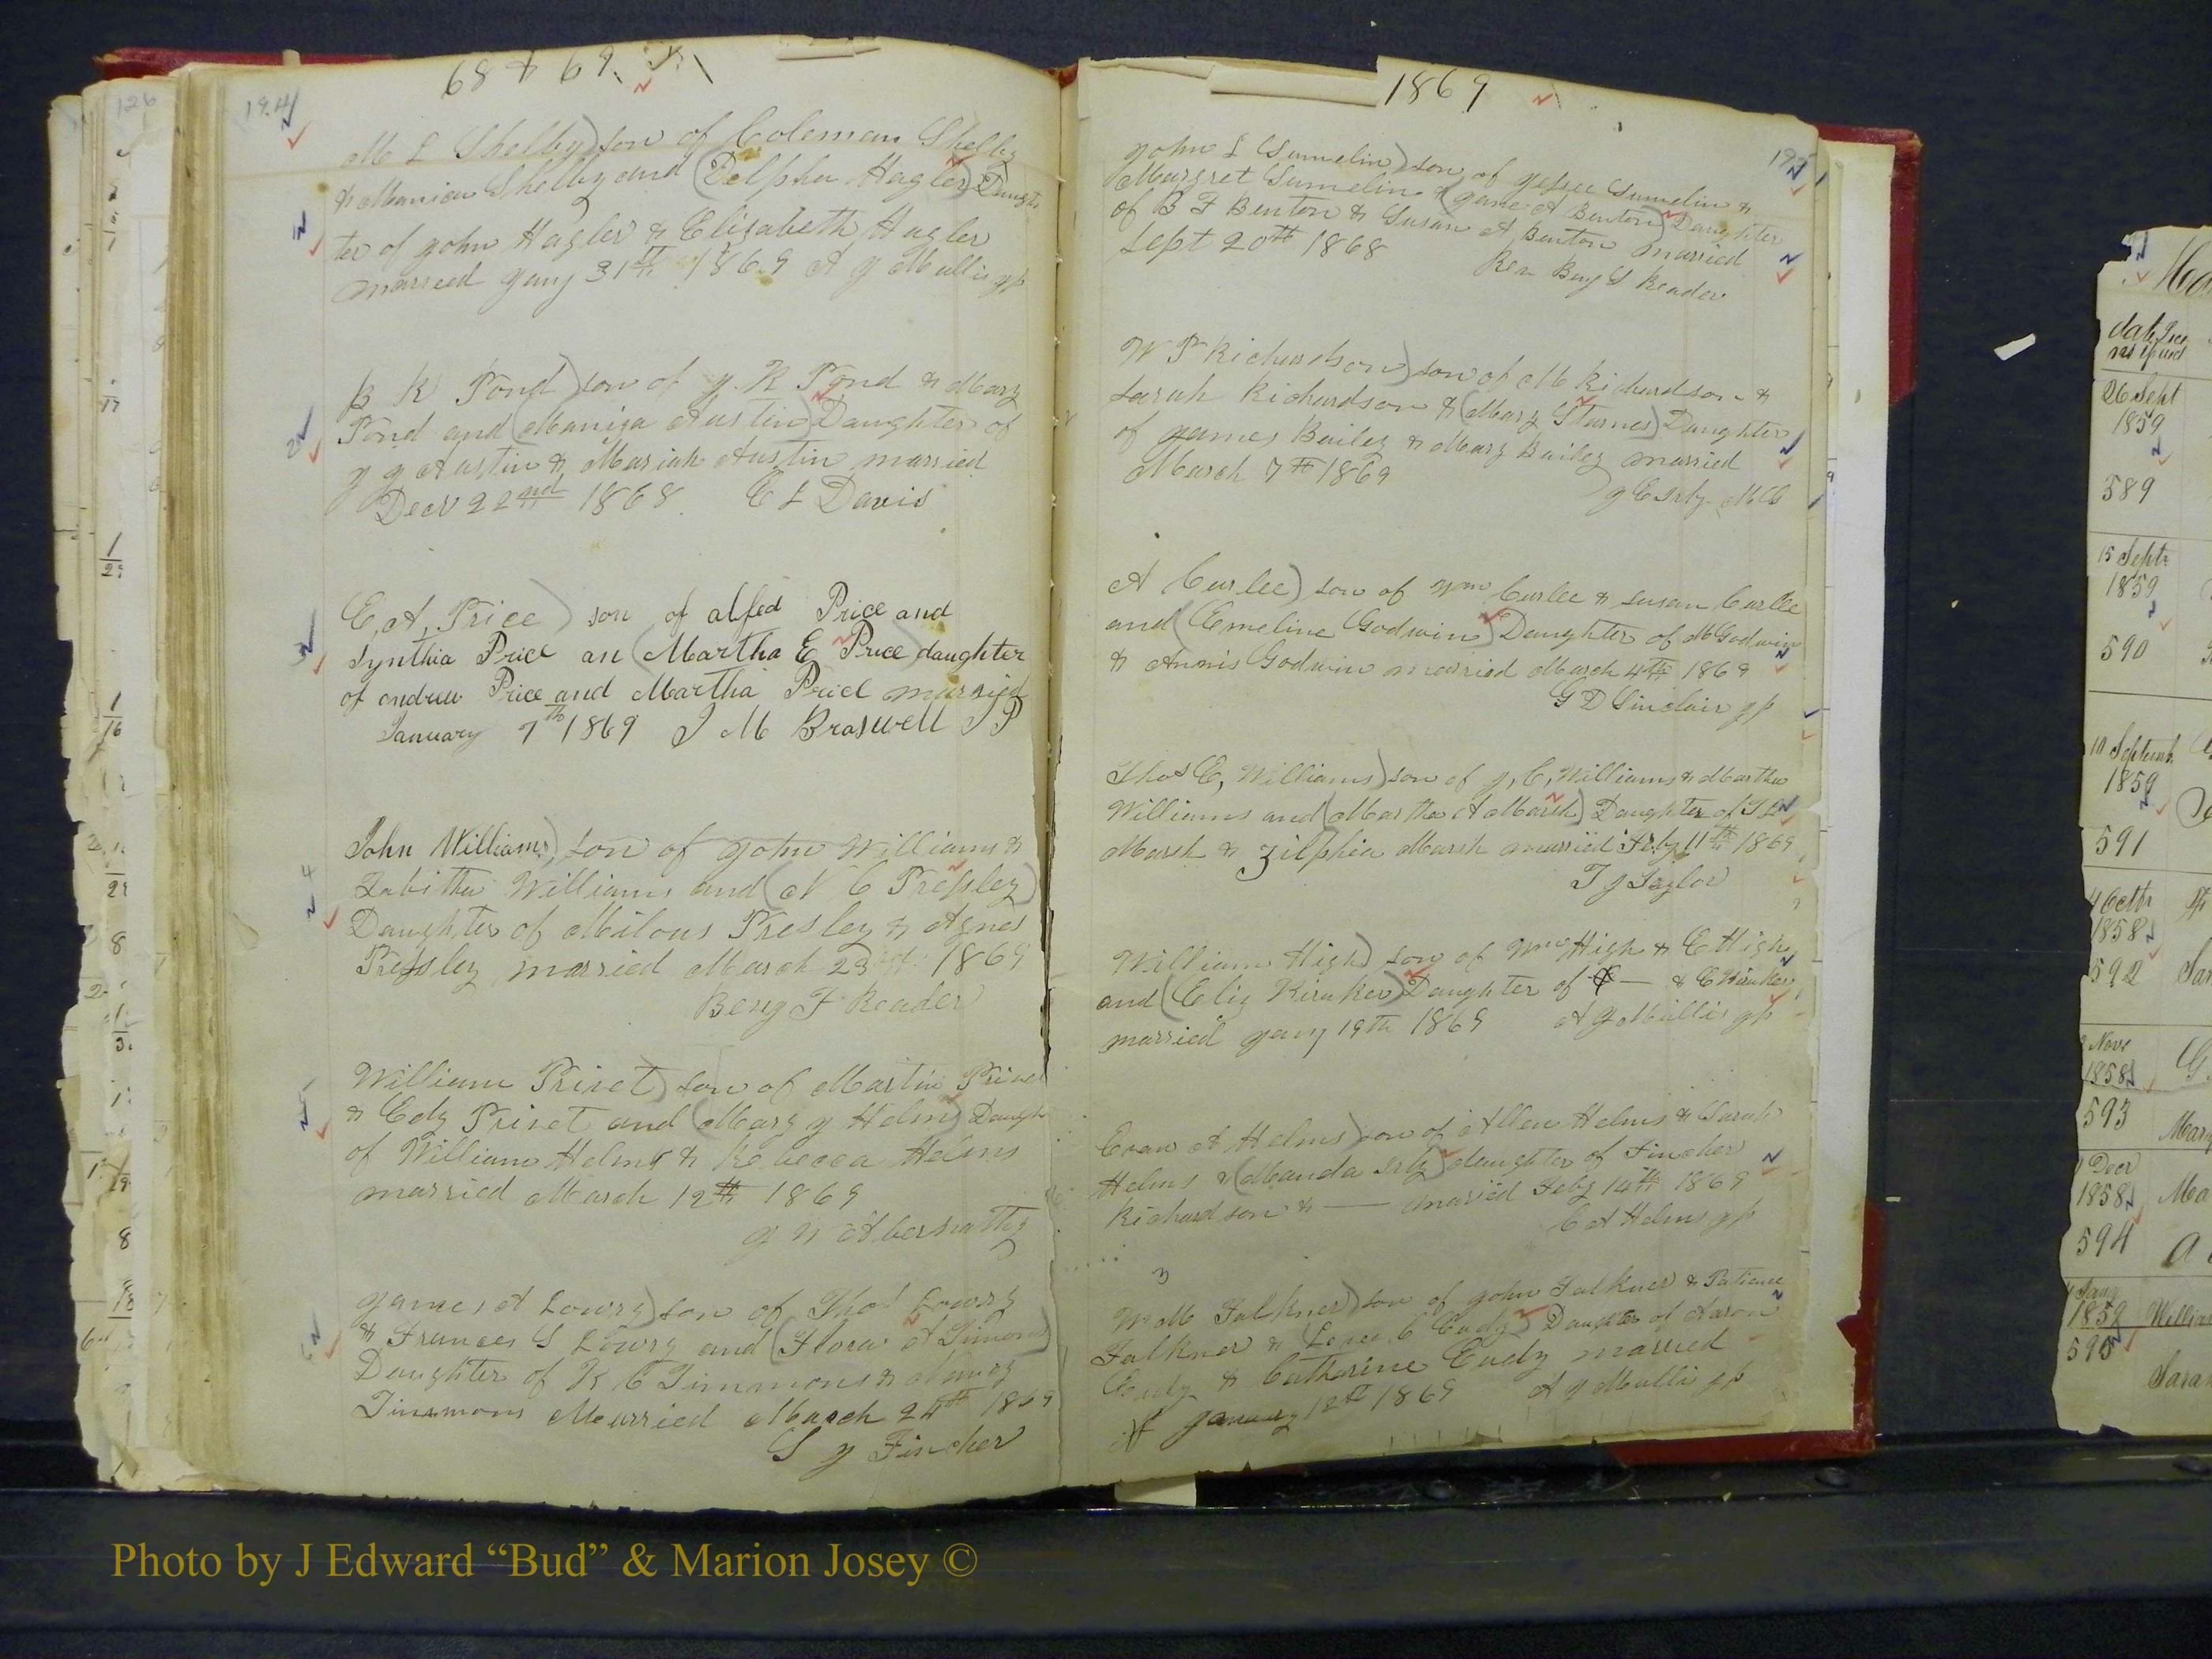 68 & 69
194
M L Shelby) son of Coleman Shelby
& Manica Shelby and (Delpha Hagler) Daugh
ter of John Hagler & Elizabeth Hagler
married Jany 31st 1869 A J Mullis JP
B K Pond) son of J. R Pond & Mary
Pond and (Maniza Austin) Daughter of
J J Austin & Mariah Austin married
Decr 22nd 1868. E L Davis
E, A, Price) son of alfed Price and
Synthia Price an (Martha E Price) daughter
of andrew Price and Martha Price married
January 7th 1869 J M Braswell J P
John Williams) son of John Williams &
Tabitha Williams and (N C Pressley)
Daughter of Milous Presley & Agnes
Pressley married March 23rd 1869
Benj F Reader
William Privet) son of Martin Privet
& Edy Privet and (Mary J Helms) Daugh
of William Helms & Rebecca Helms
married March 12th 1869
J N Abernathy
James A Lowry) son of Thos Lowry
& Frances S Lowry and (Flora A Timons)
Daughter of R C Timmons & Nancy
Timmons Married March 24th 1869
S J Fincher
1869
195
John L Sumelin) son of Jessee Sumelin &
Margret Sumelin & (Jane A Benton) Daughter
of B F Benton & Susan A Benton married
Sept 20th 1868 Rev Benj S Reader
W P Richardson) son of M Richardson &
Sarah Richardson & (Mary Starnes) Daughter
of James Bailey & Mary Bailey married
March 7th 1869
J E Irby M G
A Curlee) son of Wm Curlee & Susan Curlee
and (Emeline Godwin) Daughter of M Godwin
& Annis Godwin married March 4th 1869
G D Sinclair JP
Thos E, Williams) son of J, C, Williams & Martha
Williams and (Martha A Marsh) Daughter of J L
Marsh & Zilphia Marsh married Feby 11th 1869
T J Taylor
William High) son of Wm High & E High
and (Eliz Kiruker) Daughter of — & E
married Jany 19th 1869 A J Mullis JP
Evan A Helms) son of Allen Helms & Sarah
Helms & (Manda Irby) daughter of Fincher
Richardson & — maried Feby 14th 1869
C A Helms JP
W M Falkner) son of John Falkner & Patience
Falkner & ( C Eudy) Daughter of Aaron
Eudy & Catharine Eudy married
January 12th 1869 A J Mullis JP
date
26 Sept
1859
589
15 Septr
1859
590
10 Septemb
1859
591
4 Octr
1858
592
Sar
Nove
1858
593
Mary
Decr
1858
594
Ma
Jany
1859
595
William
Sara
Photo by J Edward “Bud” & Marion Josey ©